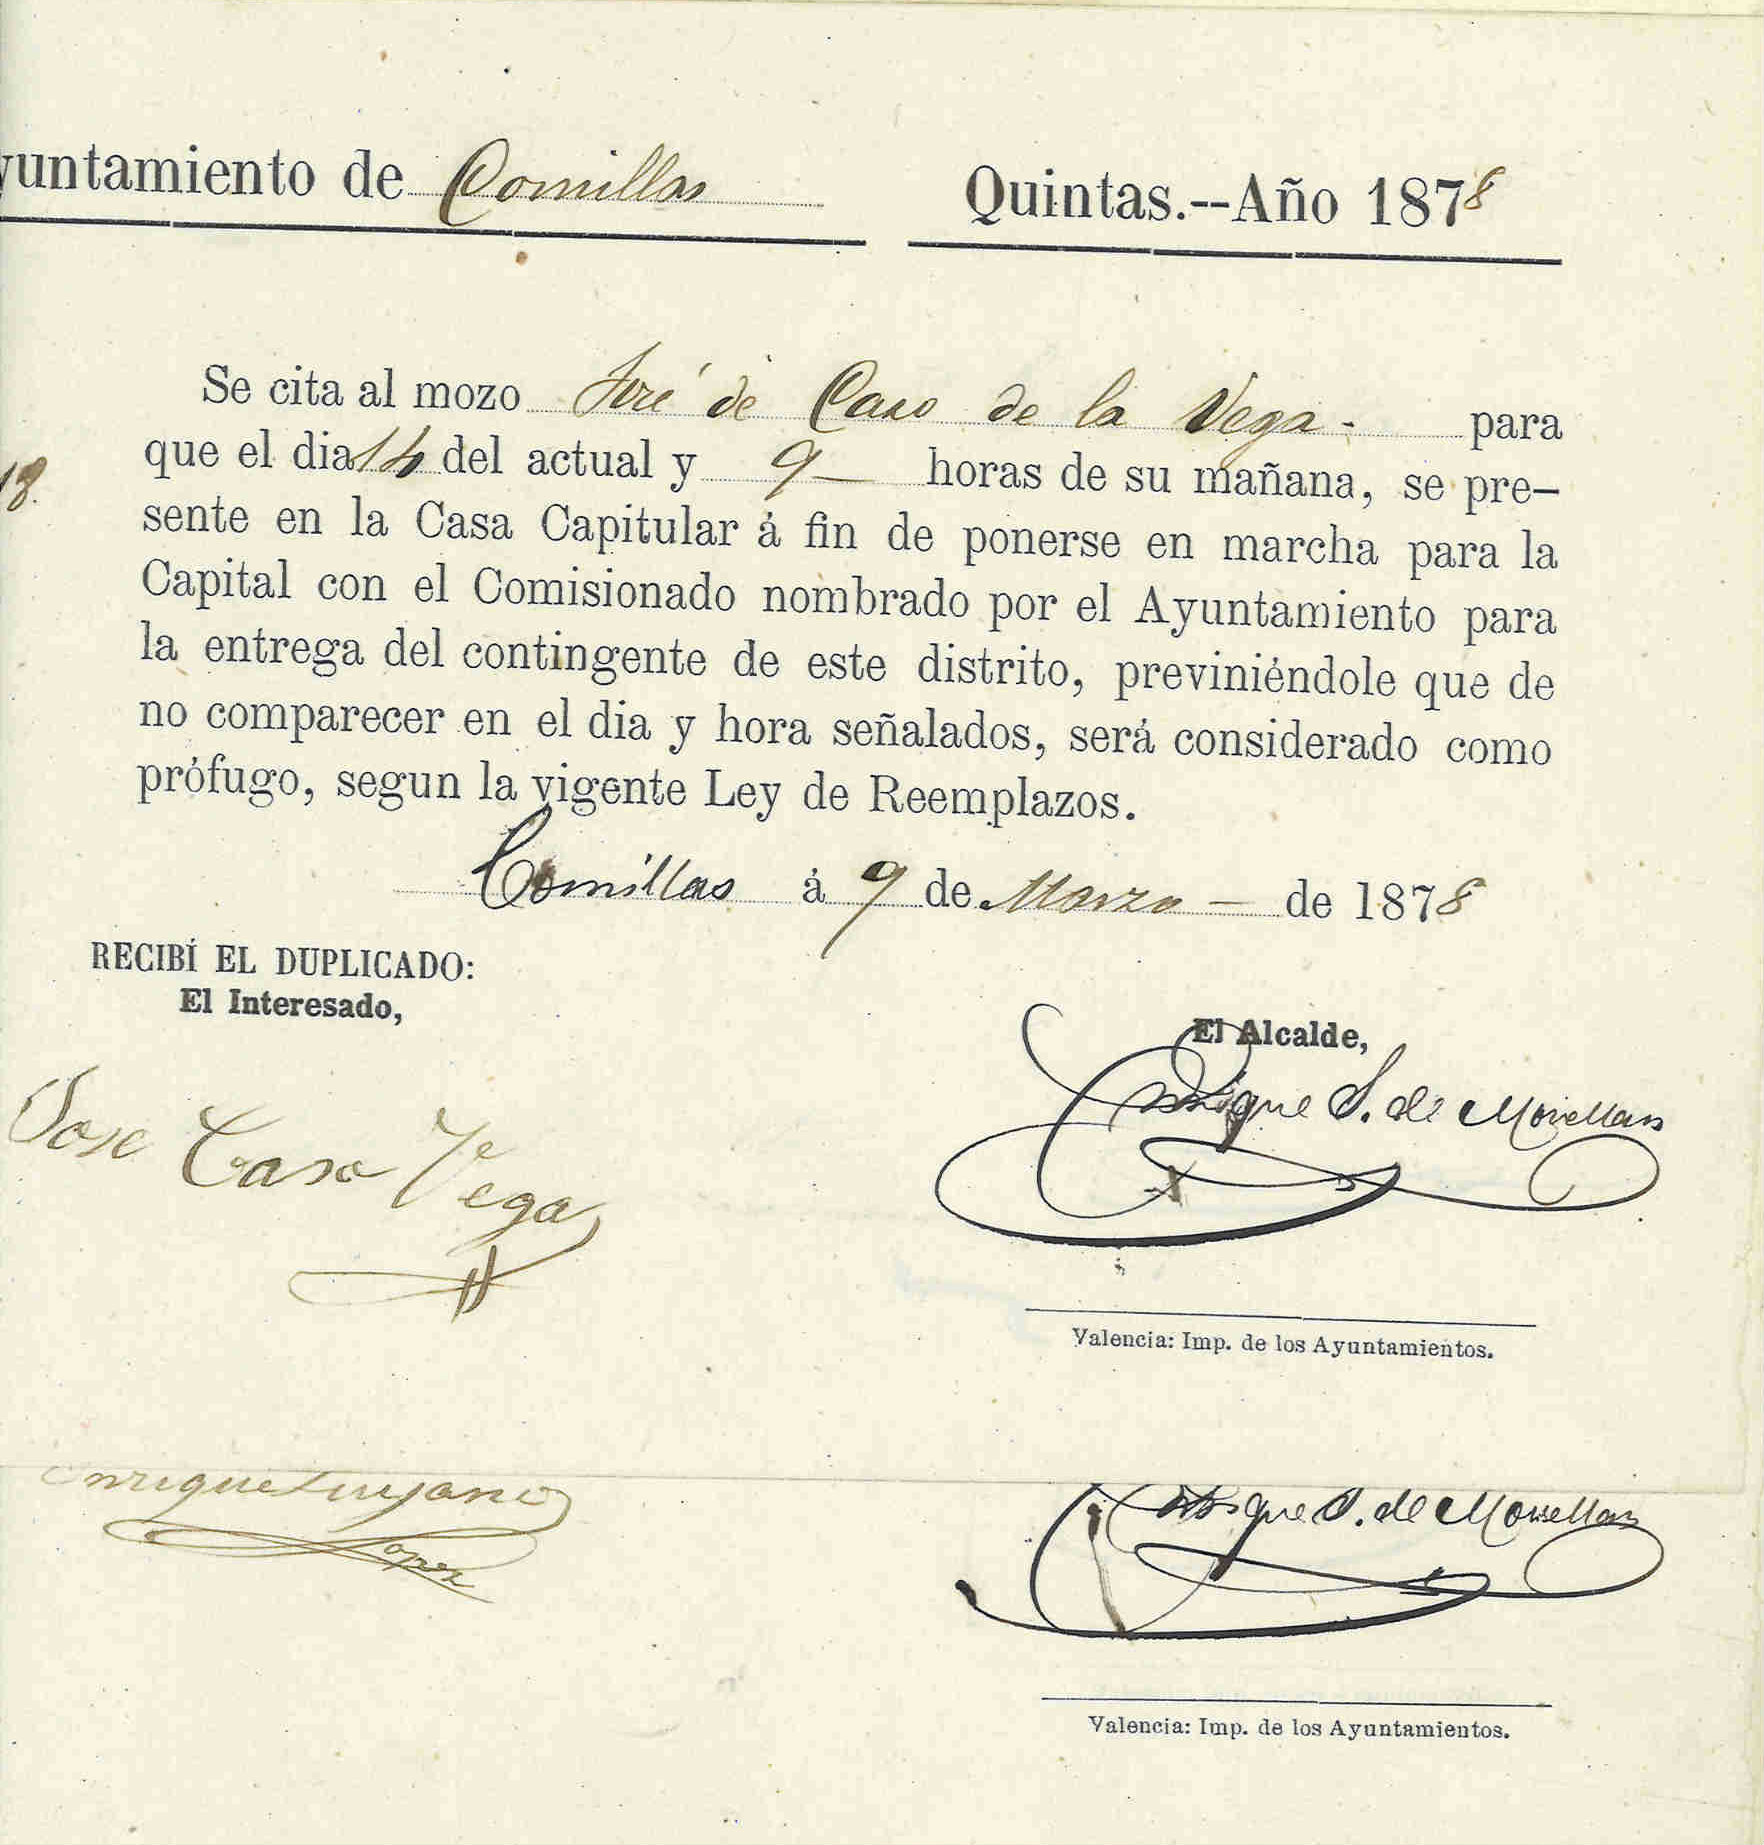 yuntamiento de Comillas Quintas.--Año 1878
Se cita al mozo José de Caso de la Vega - para
que el dia 14 del actual y 9 horas de su mañana, se pre-
18.
sente en la Casa Capitular á fin de ponerse en marcha para la
Capital con el Comisionado nombrado por el Ayuntamiento para
la entrega del contingente de este distrito, previniéndole que de
no comparecer en el dia y hora señalados, será considerado como
prófugo, segun la vigente Ley de Reemplazos.
Comillas á 9 de Marzo - de 1878
RECIBÍ EL DUPLICADO:
El Interesado,
El Alcalde,
Enrique S. de Movellan
Jose Caso Vega
Valencia: Imp. de los Ayuntamientos.
Enrique
Lopez
Enrique S. de Movellan
Valencia: Imp. de los Ayuntamientos.